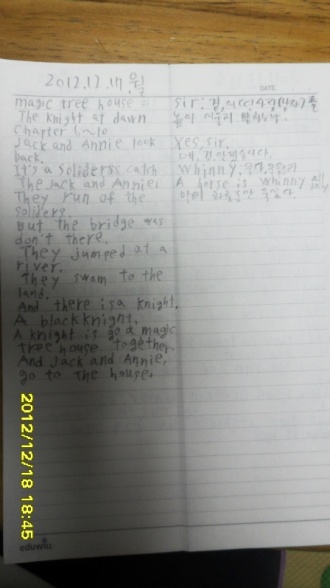 2012.12.17.월
magic tree house
The knight at dawn
Chapter 6~10
Jack and Annie look
back.
It's a Soliderss catch
The Jack and Annie.
They run of the
soliders.
But the bridge was
don't there.
They jumped at a
river.
They swam to the
land.
And there is a knight.
A black knight.
A knight is go a magic
tree house together.
And Jack and Annie,
go to the house.
DATE
Sir:
Yes, sir.
Whinny:
A horse is whinny
2012/12/18 18:45
eduwill